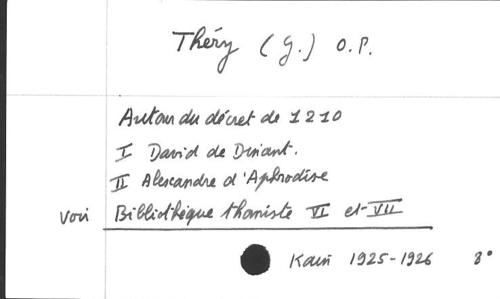 Théry (G.) O.P.
Autour du décret de 1210
I David de Dinant.
II Alexandre d'Aphrodise
voir Bibliothèque thomiste VI et VII
Kain 1925-1926 8°